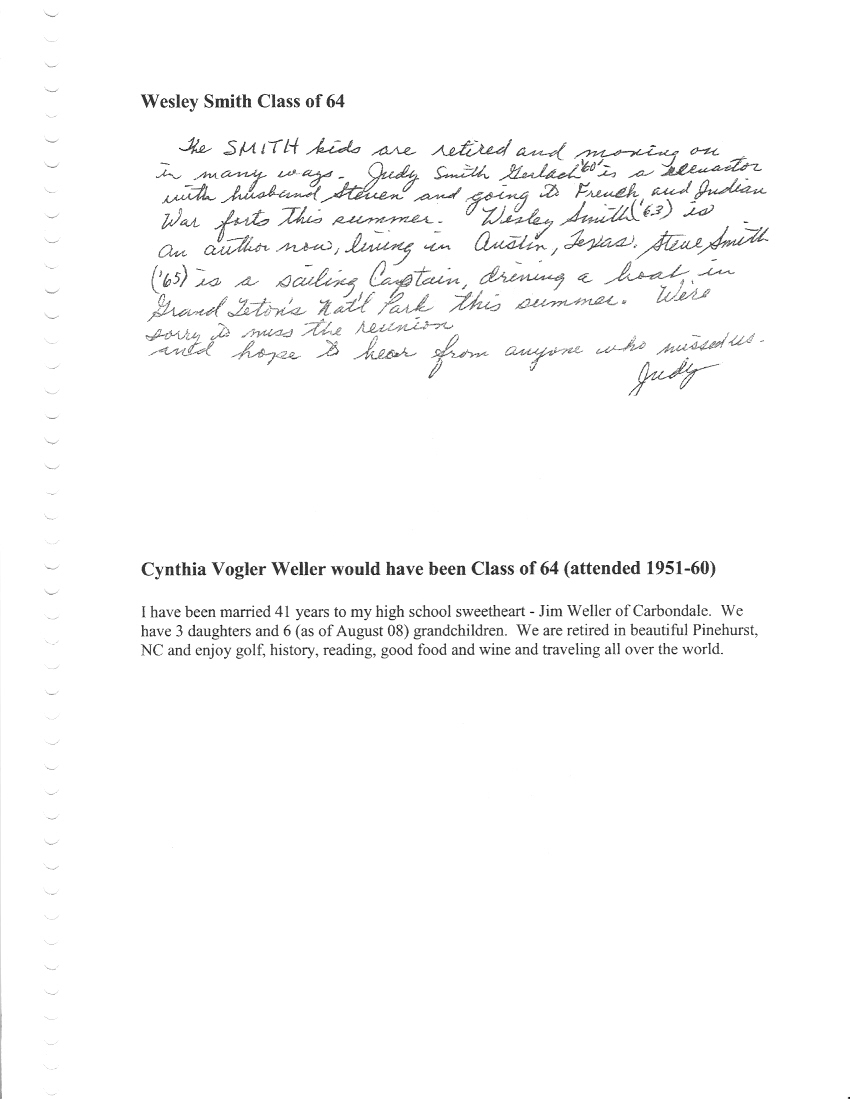 Wesley Smith Class of 64
The SMITH kids are retired and moving on
in many ways. Judy Smith Gerlach '60 is a reenactor
with husband Steven and going to French and Indian
War forts this summer. Wesley Smith ('63) is
an author now, living in Austin, Texas. Steve Smith
('65) is a sailing Captain, driving a boat in
Grand Teton's Nat'l Park this summer. We're
sorry to miss the reunion
and hope to hear from anyone who missed us.
Judy
Cynthia Vogler Weller would have been Class of 64 (attended 1951-60)
I have been married 41 years to my high school sweetheart - Jim Weller of Carbondale. We
have 3 daughters and 6 (as of August 08) grandchildren. We are retired in beautiful Pinehurst,
NC and enjoy golf, history, reading, good food and wine and traveling all over the world.